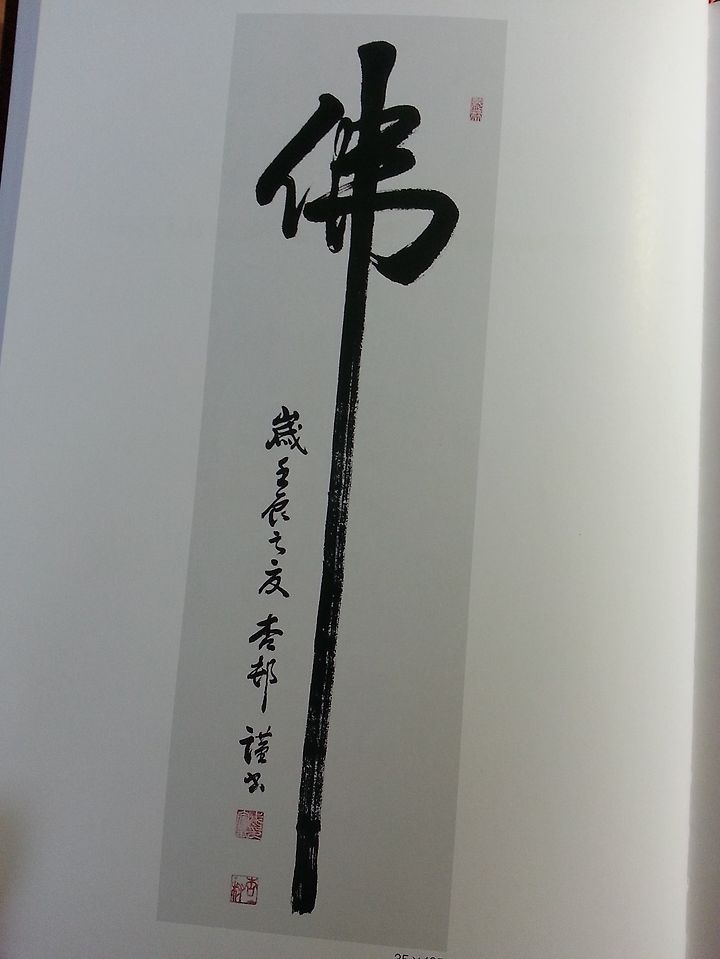 佛
歲壬辰之夏 杏邨 謹書